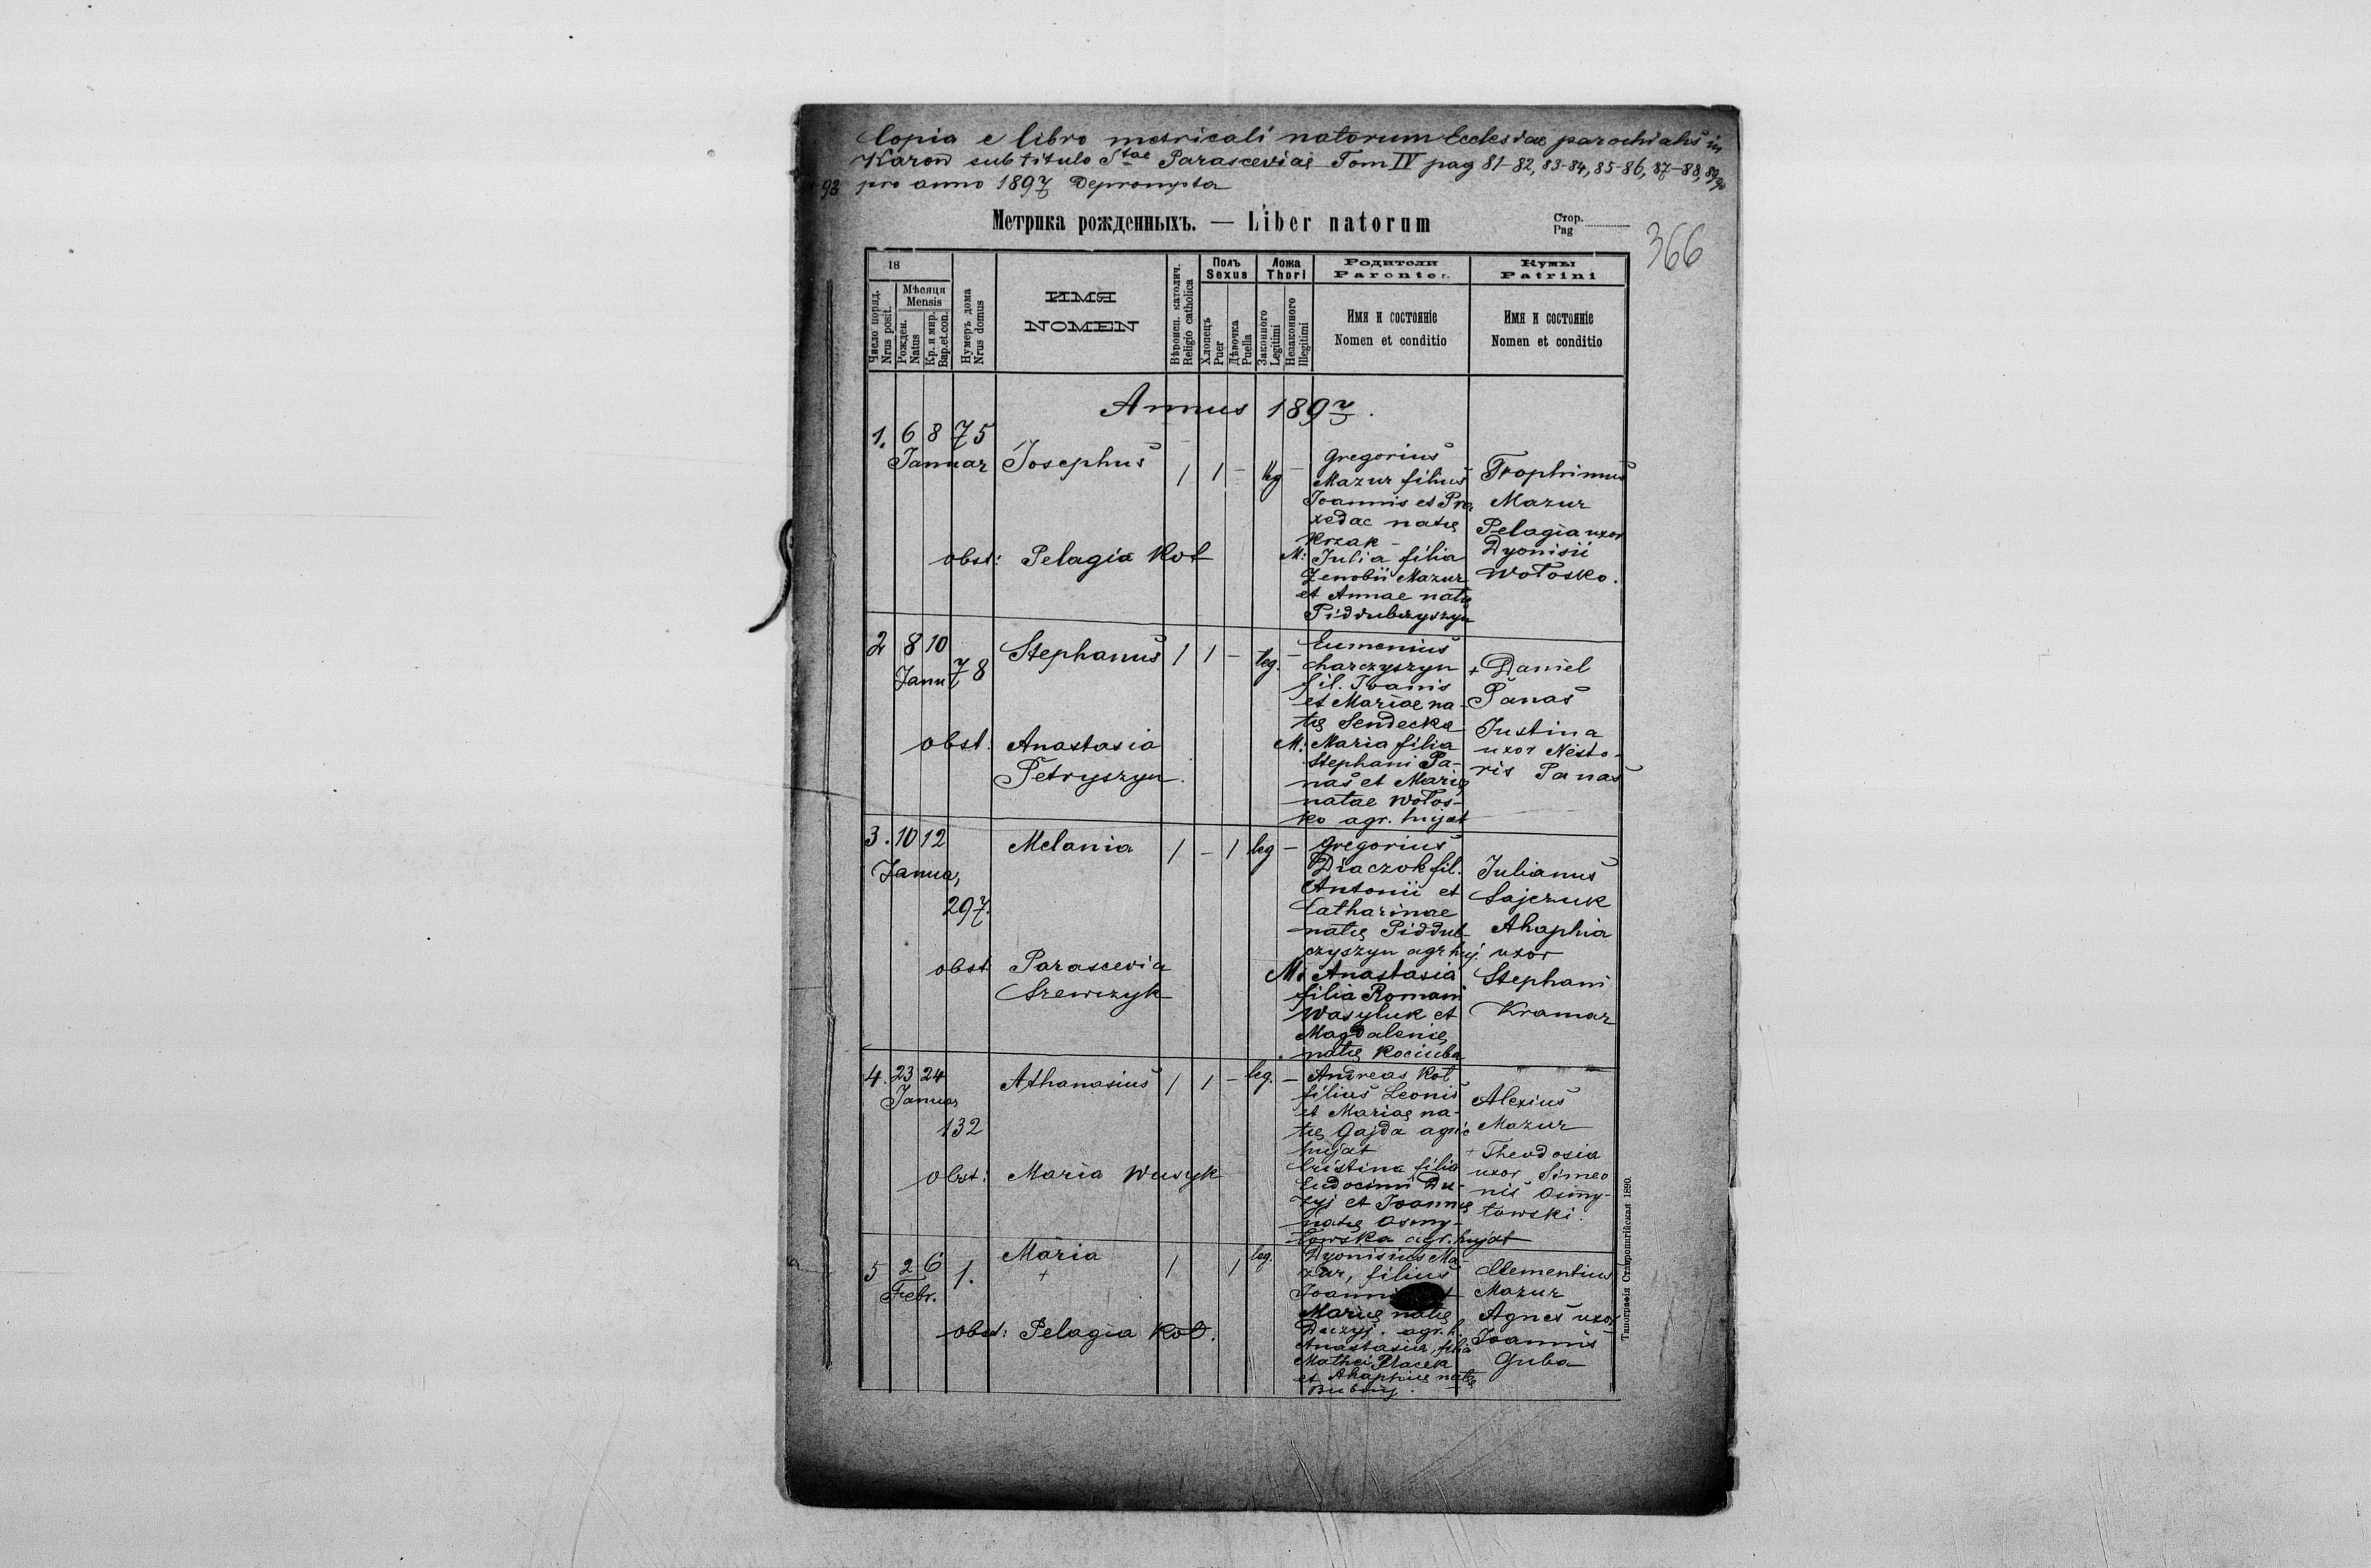 Copia e libro metricali natorum Ecclesiae parochialis in
Karow sub titulo Stae Parasceviae Tom IV pag 81-82, 83-84, 85-86, 87-88, 89-90
92 pro anno 1897 Deprompta
Метрика рожденныхъ. — Liber natorum
Стор.
Pag
366
18
Мѣсяця
Mensis
Число поряд.
Nrus posit.
Рожден.
Natus
Кр. и мир.
Bap.et.con.
Нумеръ дома
Nrus domus
ИМЯ
NOMEN
Вѣроисп. католич.
Religio catholica
Полъ
Sexus
Хлопецъ
Puer
Дѣвочка
Puella
Ложа
Thori
Законного
Legitimi
Незаконного
Illegitimi
Родители
Parentes
Имя и состояніе
Nomen et conditio
Кумы
Patrini
Имя и состояніе
Nomen et conditio
Annus 1897.
1. 6 8 75
Januar Josephus 1 1 – leg –
Gregorius
Mazur filius
Joannis et Pra
xedae natę
Krzak –
M: Julia filia
Zenobii Mazur
et Annae natę
Piddubczyszyn
Trophimus
Mazur
Pelagia uxor
Dyonisii
Wołosko.
obst: Pelagia Kot
2 8 10
Janu 78 Stephanus 1 1 – leg. –
Eumenius
Charczyszyn
fil. Joanis
et Mariae na-
tę Sendecka
M: Maria filia
Stephani Pa-
nas et Marię
natae Wołos-
ko agr. hujat
+ Daniel
Panas
Justina
uxor Nesto-
ris Panas
obst. Anastasia
Petryszyn.
3. 10 12
Janua,
297. Melania 1 – 1 leg –
Gregorius
Diaczok fil.
Antonii et
Catharinae
natę Piddub-
czyszyn agr huj.
M: Anastasia
filia Romani
Wasyluk et
Magdalenię
natę Kociuba
Julianus
Sajczuk
Ahaphia
uxor
Stephani
Kramar
obst: Parascevia
Szewczyk
4. 23 24
Januar
132 Athanasius 1 1 – leg. –
Andreas Kot
filius Leonis
et Mariaę na-
tę Gajda agric
hujat
Cristina filia
Eudocimi Du-
zyj et Joannę
natę Osmy-
łowska agr. hujat
Alexius
Mazur
+ Theodosia
uxor Simeo
nis Osmy-
łowski.
obst: Maria Wusyk
5 2 6 1.
Febr. Maria 1 1 leg.
+
Dyonisius Ma-
zur, filius
Marię natę
Duzyj. agr. h.
Anastasia, filia
Mathei Placek
et Ahaphię natę
Clementius
Mazur
Agnes uxor
Joannis
Guba
obst: Pelagia Kot.
Типографія Ставропигійская 1890.